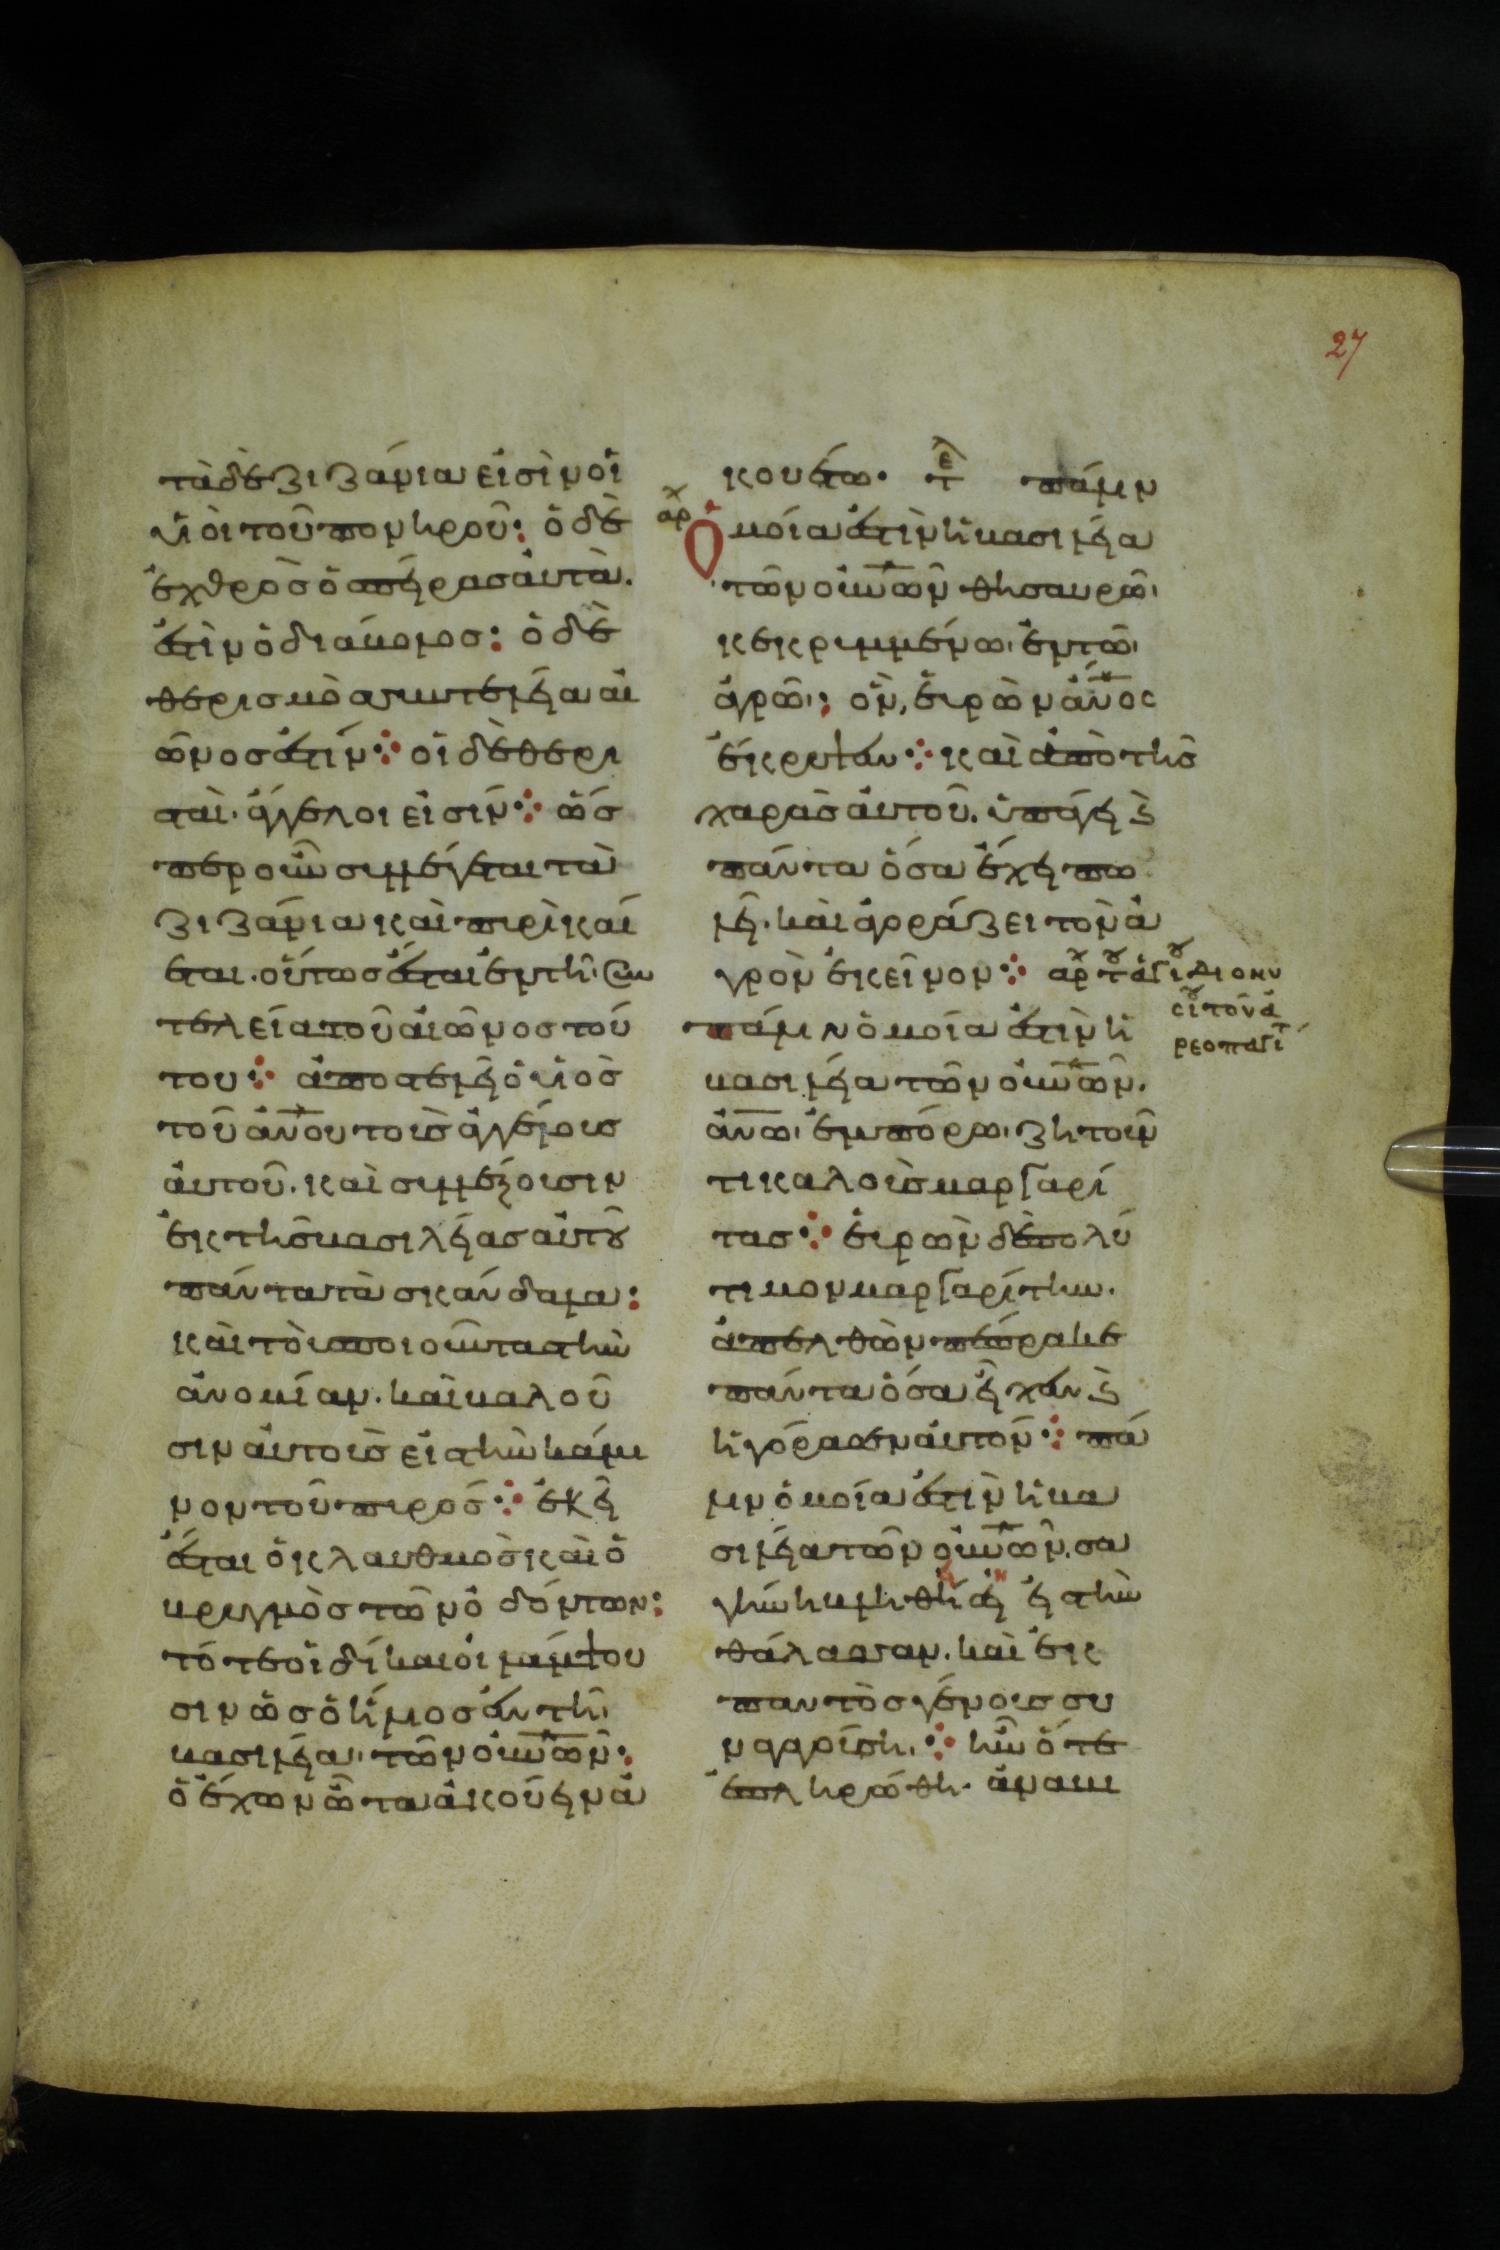 27
τὰ δὲ ζιζάνια εἰσὶν οἱ
υἱοὶ τοῦ πονηροῦ: ὁ δὲ
ἐχθρὸσ ὁ σπείρασ ἀυτὰ.
ἐστὶν ὁ διάβολοσ: ὁ δὲ
θερισμὸσ συντέλεια αἰ
ῶνοσ ἐστίν⁘ οἱ δὲ θερι
σταὶ· ἄγγελοι εἰσίν⁘ ὥσ
περ οὖν συλλέγεται τὰ
ζιζάνια καὶ πυρὶ καί
εται. οὕτωσ ἔσται ἐν τῆι συν
τελεία τοῦ αἰῶνοσ τού
του⁘ ἀποστελεῖ ὁ υἱὸσ
τοῦ ἀνου τοὺσ ἀγγέλουσ
ἀυτοῦ. καὶ συλλέξουσιν
ἐκ τῆσ βασιλείασ αὐτοῦ
πάντα τὰ σκάνδαλα:
καὶ τοὺσ ποιοῦντασ τὴν
ἀνομίαν. καὶ βαλοῦ
σιν ἀυτοὺσ εἰσ τὴν κάμι
νον τοῦ πυροσ⁘ ἐκεῖ
ἔσται ὁ κλαυθμὸσ καὶ ὁ
βρυγμὸσ τῶν ὀδόντων:
τότε οἱ δίκαιοι λάμψου
σιν ὡσ ὁ ἥλιοσ ἐν τῆι
βασιλεία τῶν οὐνῶν:
ὁ ἔχων ὦτα ἀκούειν ἀ
κουέτω. τελ πάλιν
αρχ Ὁμοία ἐστὶν ἡ βασιλεία
τῶν οὐνῶν θησαυρῶι
κεκρυμμένω ἐν τῶι
ἀγρῶι: ὃν, ἑυρὼν ἄνος
ἔκρυψεν⁘ καὶ ἀπὸ τῆσ
χαρᾶσ ἀυτοῦ. ὑπάγει καὶ
πάντα ὅσα ἔχει πω
λεῖ. καὶ ἀγοράζει τὸν ἀ
γρὸν ἐκεῖνον⁘ αρχ του ἁγίου Διονυ
σίου τοῦ ἀ
ρεοπαγίτ
πάλιν ὁμοία ἐστὶν ἡ
βασιλεία τῶν οὐνῶν.
ἀνω ἐμπόρω ζητοῦν
τι καλοὺσ μαργαρί
τασ⁘ ἑυρὼν δὲ πολύ
τιμον μαργαρίτην.
ἀπελθὼν πέπρακε
πάντα ὅσα εἶχεν καὶ
ἠγόρασεν ἀυτόν⁘ πά
λιν ὁμοία ἐστὶν ἡ βα
σιλεία τῶν οὐνῶν. σα
γήνη βληθείση εἰσ τὴν
θάλασσαν. καὶ ἐκ
παντὸσ γένουσ συ
ναγούση⁘ ἣν ὅτε
ἐπληρώθη. ἀναβι